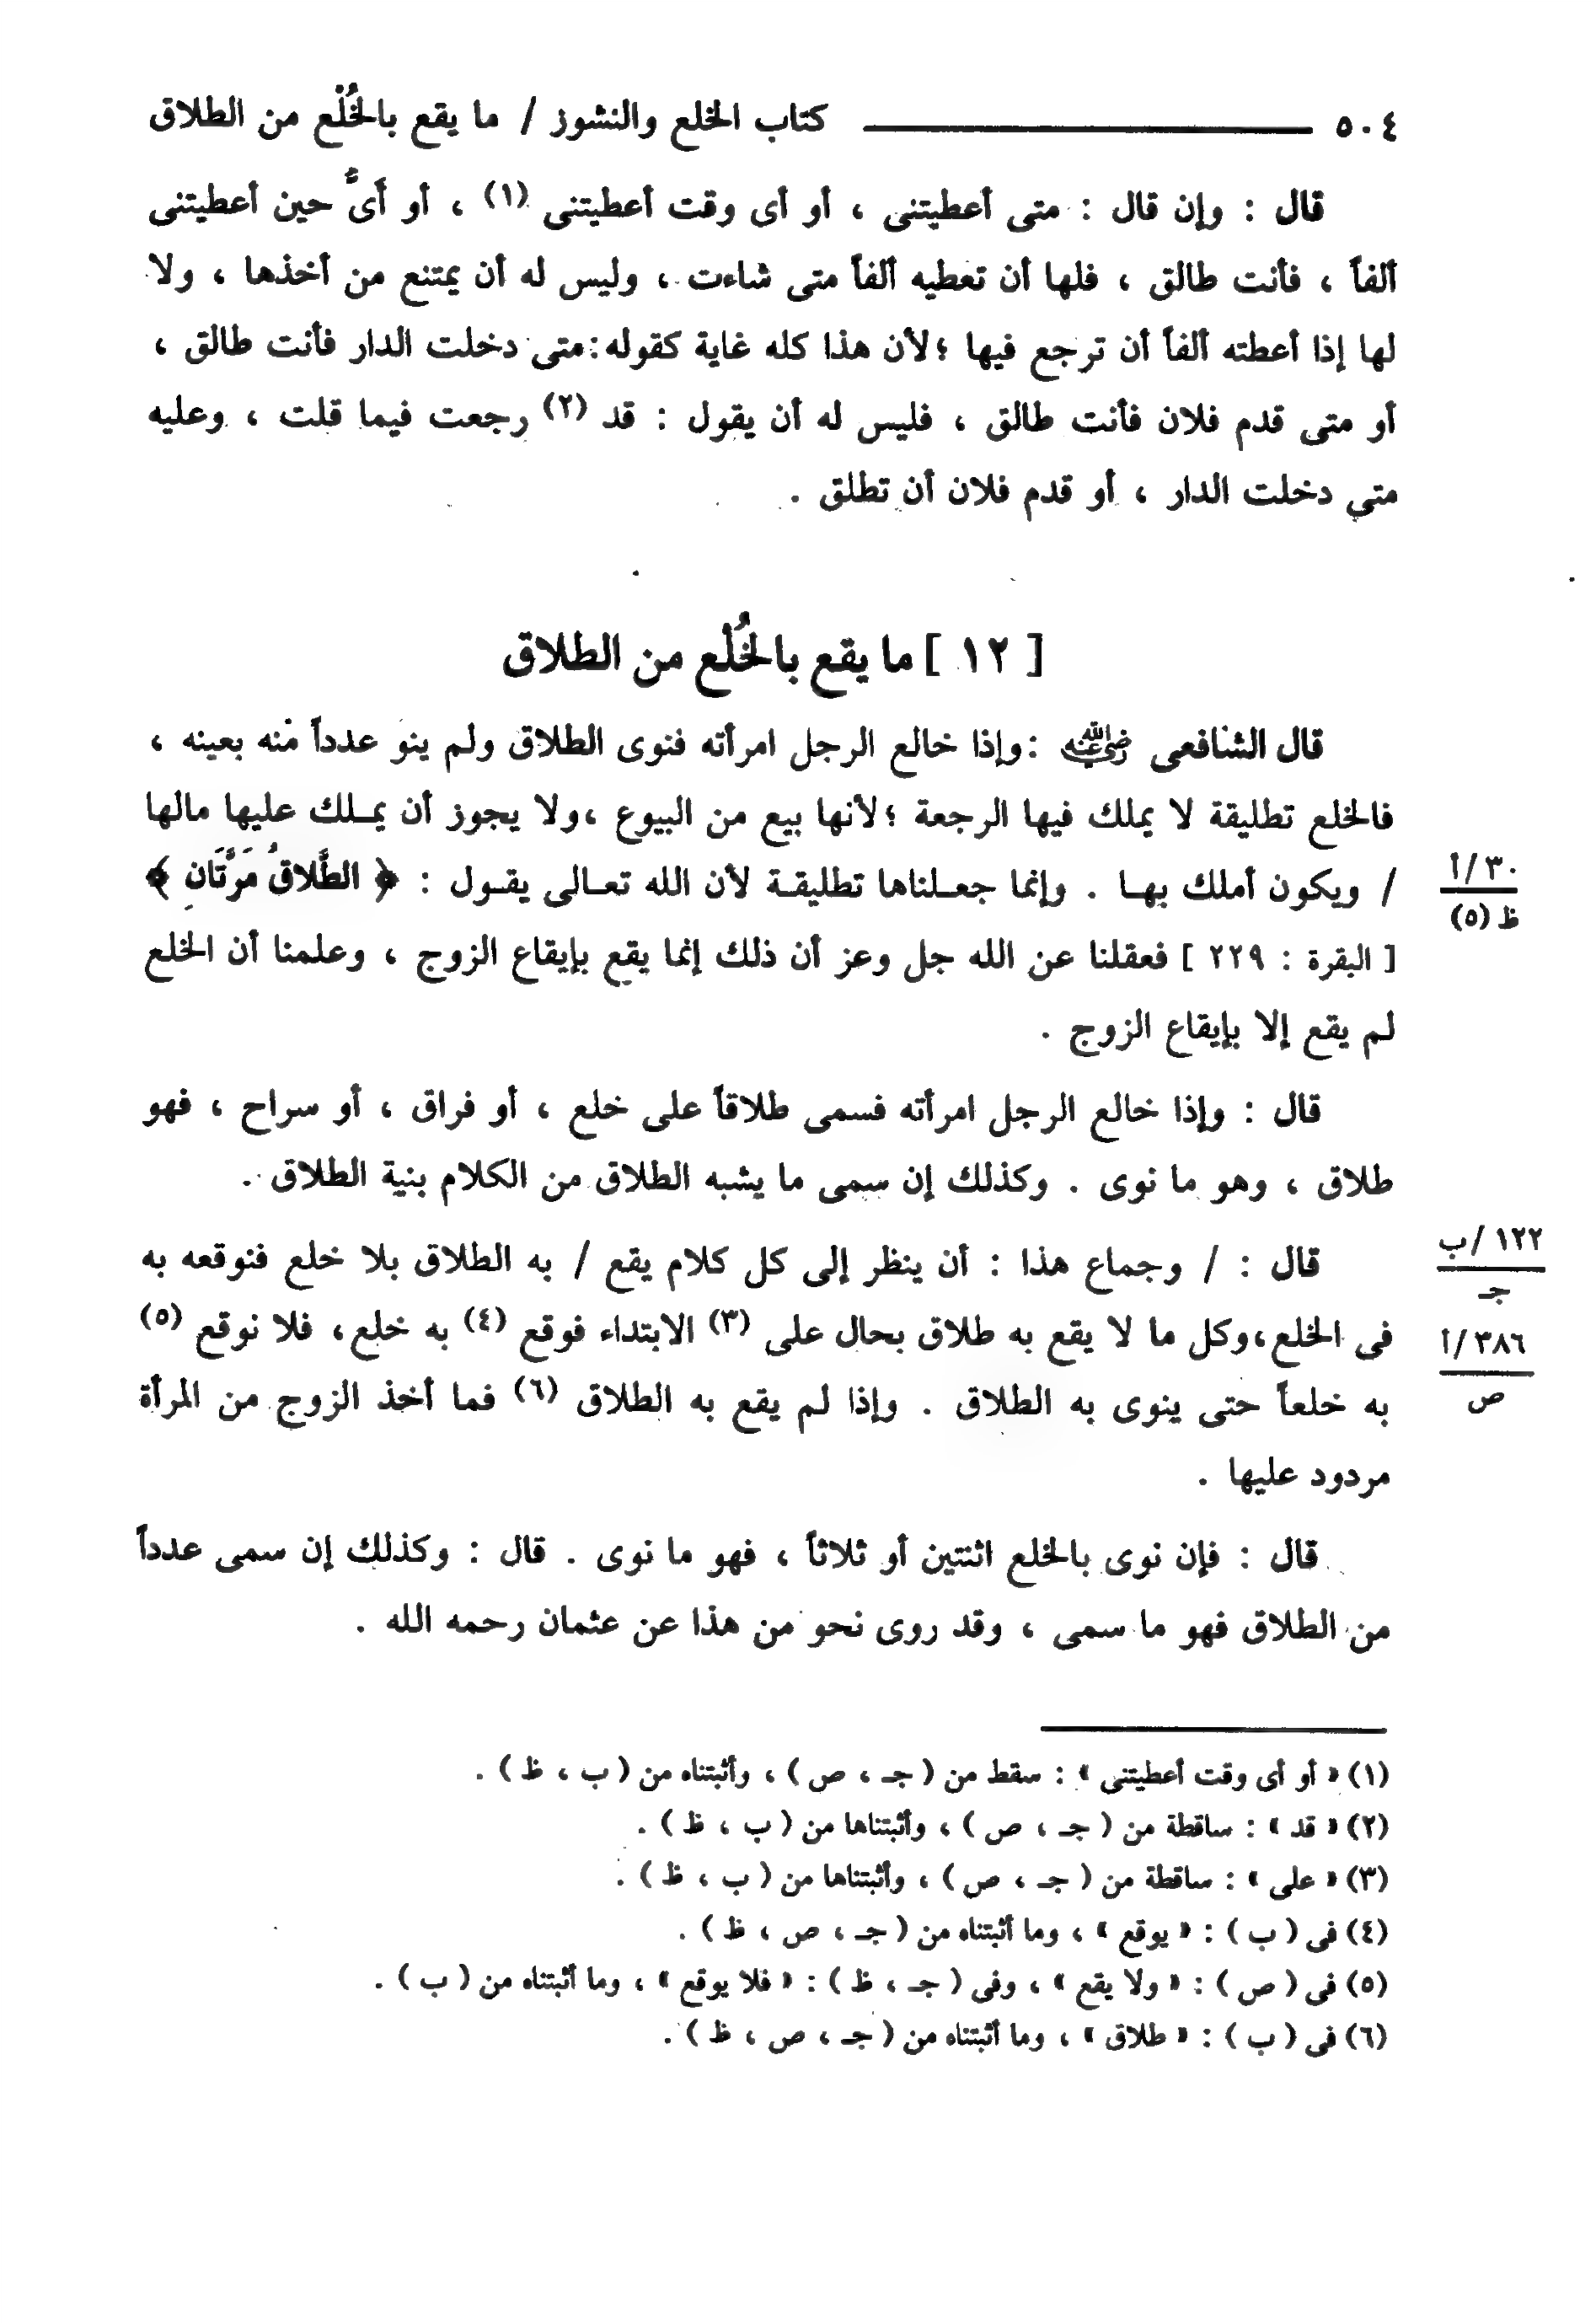 ٥٠٤ كتاب الخلع والنشوز / ما يقع بالخُلْع من الطلاق
قال : وإن قال : متى أعطيتنى ، أو أى وقت أعطيتنى (١) ، أو أَىَّ حين أعطيتنى
ألفاً ، فأنت طالق ، فلها أن تعطيه ألفاً متى شاءت ، وليس له أن يمتنع من أخذها ، ولا
لها إذا أعطته ألفاً أن ترجع فيها ؛ لأن هذا كله غاية كقوله : متى دخلت الدار فأنت طالق ،
أو متى قدم فلان فأنت طالق ، فليس له أن يقول : قد (٢) رجعت فيما قلت ، وعليه
متى دخلت الدار ، أو قدم فلان أن تطلق .
[ ١٢ ] ما يقع بالخُلْع من الطلاق
قال الشافعى رضي الله عنه : وإذا خالع الرجل امرأته فنوى الطلاق ولم ينو عدداً منه بعينه ،
فالخلع تطليقة لا يملك فيها الرجعة ؛ لأنها بيع من البيوع ، ولا يجوز أن يمـلك عليها مالها
/ ويكون أملك بهـا . وإنما جعـلناها تطليقـة لأن الله تعـالى يقـول : ﴿ الطَّلاقُ مَرَّتَانِ ﴾
٣٠/أ
ظ (٥)
[ البقرة : ٢٢٩ ] فعقلنا عن الله جل وعز أن ذلك إنما يقع بإيقاع الزوج ، وعلمنا أن الخلع
لم يقع إلا بإيقاع الزوج .
قال : وإذا خالع الرجل امرأته فسمى طلاقاً على خلع ، أو فراق ، أو سراح ، فهو
طلاق ، وهو ما نوى . وكذلك إن سمى ما يشبه الطلاق من الكلام بنية الطلاق .
قال : / وجماع هذا : أن ينظر إلى كل كلام يقع / به الطلاق بلا خلع فنوقعه به
١٢٢/ب
جـ
فى الخلع ، وكل ما لا يقع به طلاق بحال على (٣) الابتداء فوقع (٤) به خلع ، فلا نوقع (٥)
٣٨٦/أ
ص
به خلعاً حتى ينوى به الطلاق . وإذا لم يقع به الطلاق (٦) فما أخذ الزوج من المرأة
مردود عليها .
قال : فإن نوى بالخلع اثنتين أو ثلاثاً ، فهو ما نوى . قال : وكذلك إن سمى عدداً
من الطلاق فهو ما سمى ، وقد روى نحو من هذا عن عثمان رحمه الله .
(١) « أو أى وقت أعطيتنى » : سقط من ( جـ ، ص ) ، وأثبتناه من ( ب ، ظ ) .
(٢) « قد » : ساقطة من ( جـ ، ص ) ، وأثبتناها من ( ب ، ظ ) .
(٣) « على » : ساقطة من ( جـ ، ص ) ، وأثبتناها من ( ب ، ظ ) .
(٤) فى ( ب ) : « يوقع » ، وما أثبتناه من ( جـ ، ص ، ظ ) .
(٥) فى ( ص ) : « ولا يقع » ، وفى ( جـ ، ظ ) : « فلا يوقع » ، وما أثبتناه من ( ب ) .
(٦) فى ( ب ) : « طلاق » ، وما أثبتناه من ( جـ ، ص ، ظ ) .